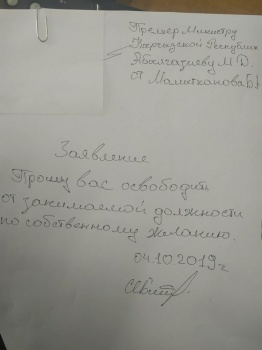 Премьер Министру
Кыргызской Республики
Абылгазиеву М Д.
от Мамытканова
Заявление
Прошу вас освободить
от занимаемой должности
по собственному желанию.
04.10.2019г